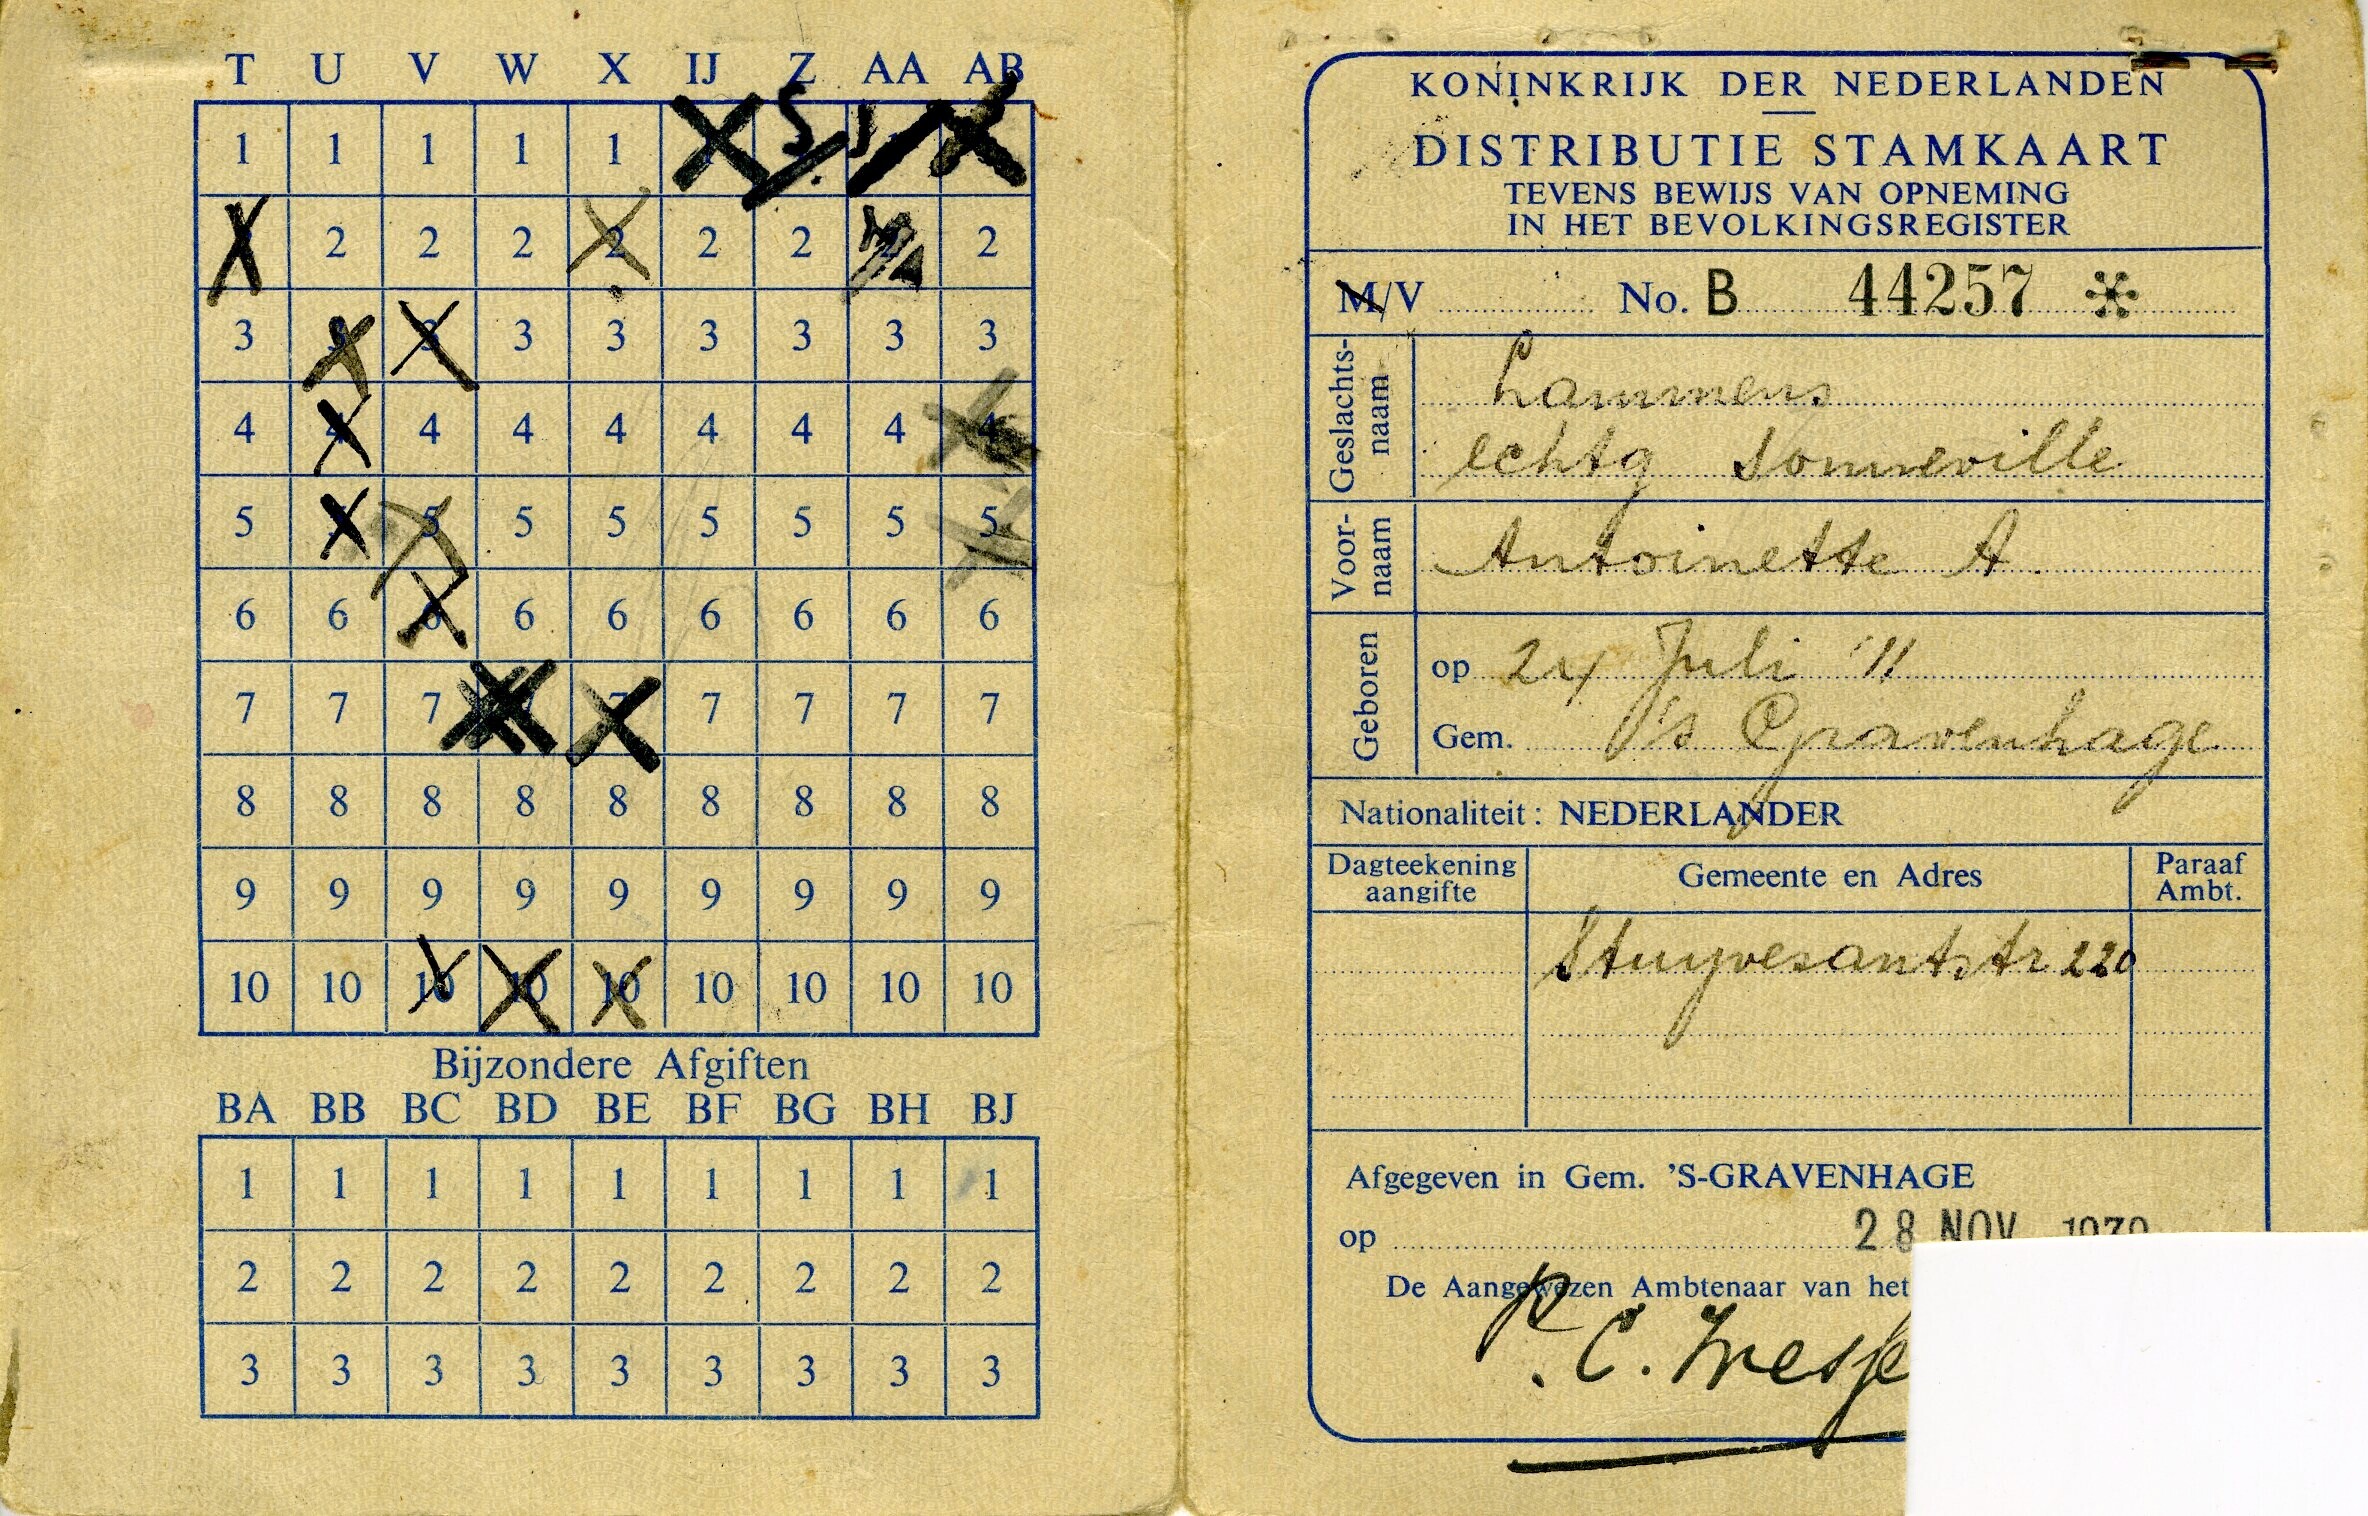 T U V W X IJ Z AA AB
1 1 1 1 1 1
2 2 2 2 2 2 2
3 3 3 3 3 3 3 3 3
4 4 4 4 4 4 4 4 4
5 5 5 5 5 5 5 5
6 6 6 6 6 6 6 6 6
7 7 7 7 7 7 7 7
8 8 8 8 8 8 8 8 8
9 9 9 9 9 9 9 9 9
10 10 10 10 10 10 10 10 10
Bijzondere Afgiften
BA BB BC BD BE BF BG BH BJ
1 1 1 1 1 1 1 1 1
2 2 2 2 2 2 2 2 2
3 3 3 3 3 3 3 3 3
KONINKRIJK DER NEDERLANDEN
DISTRIBUTIE STAMKAART
TEVENS BEWIJS VAN OPNEMING
IN HET BEVOLKINGSREGISTER
M/V No. B 44257
Geslachts-
naam
Lammens
echtg Sonneville
Voor-
naam
Antoinette A.
Geboren
op 24 Juli '11
Gem. 's Gravenhage
Nationaliteit: NEDERLANDER
Dagteekening
aangifte
Gemeente en Adres
Paraaf
Ambt.
Stuyvesantstr 220
Afgegeven in Gem. 'S-GRAVENHAGE
op 28 NOV 1939
De Aangewezen Ambtenaar van het